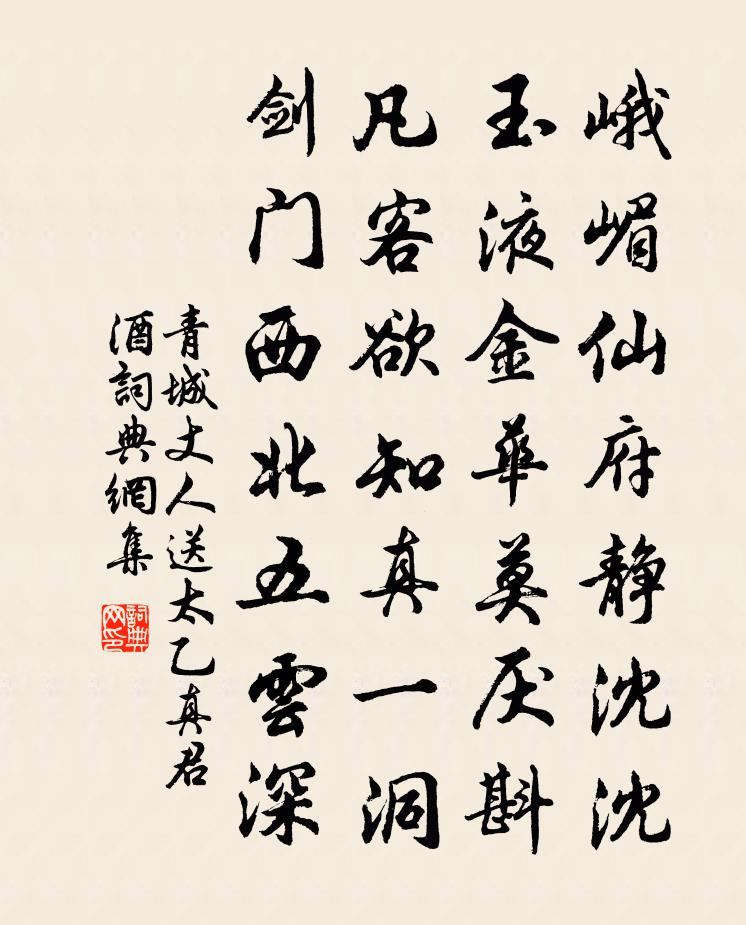 峨嵋仙府静沈沈
玉液金華莫厌斟
凡客欲知真一洞
剑门西北五雲深
青城丈人送太乙真君
酒詞典網集
詞典
网印